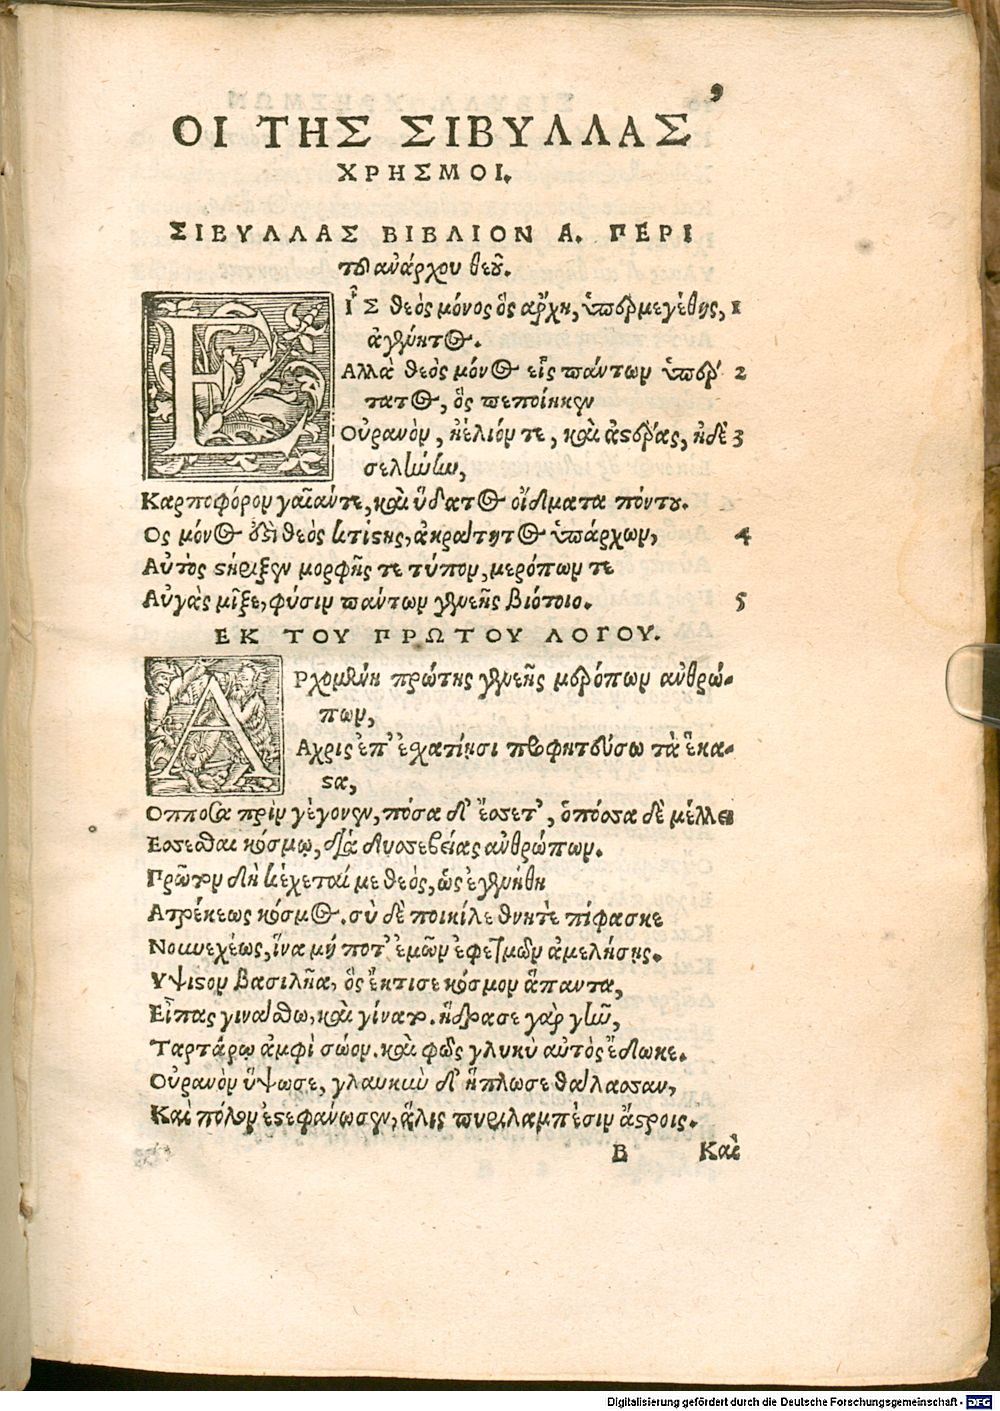 ΟΙ ΤΗΣ ΣΙΒΥΛΛΑΣ
ΧΡΗΣΜΟΙ.
ΣΙΒΥΛΛΑΣ ΒΙΒΛΙΟΝ Α. ΠΕΡΙ
τοῦ ἀνάρχου θεοῦ.
ΕΙ῟Σ θεὸς μόνος ὃς ἄρχη, ὑπερμεγέθης, 1
ἀγένητος.
Αλλὰ θεὸς μόνος εἷς πάντων ὑπέρ 2
τατος, ὃς πεποίηκεν
Οὐρανὸν, ἠέλιόν τε, καὶ ἀστέρας, ἠδὲ 3
σελήνην,
Καρποφόρον γαῖάν τε, καὶ ὕδατος οἴδματα πόντου.
Ος μόνος ἐστὶ θεὸς κτίστης, ἀκράτητος ὑπάρχων, 4
Αὐτὸς στήριξεν μορφῆς τε τύπον, μερόπων τε
Αὐγὰς μῖξε, φύσιν πάντων γενεῆς βιότοιο. 5
ΕΚ ΤΟΥ ΠΡΩΤΟΥ ΛΟΓΟΥ.
ΑΡχομένη πρώτης γενεῆς μερόπων ἀνθρώ-
πων,
Αχρις ἐπ' ἐσχατίῃσι προφητεύσω τὰ ἕκα-
στα,
Οπποσα πρὶν γέγονεν, πόσα δ' ἔσσετ', ὁπόσσα δὲ μέλλει
Εσσεσθαι κόσμῳ, διὰ δυσσεβείας ἀνθρώπων.
Πρῶτον δὴ κέχεταί με θεὸς, ὡς ἐγενήθη
Ατρέκεως κόσμος. σὺ δὲ ποικίλε θνητὲ πίφασκε
Νουνεχέως, ἵνα μή ποτ' ἐμῶν ἐφετμῶν ἀμελήσῃς.
Υψιστον βασιλῆα, ὃς ἔκτισε κόσμον ἅπαντα,
Εἴπας γινάσθω, καὶ γίνατο. ἥδρασε γὰρ γῆν,
Ταρτάρῳ ἀμφὶ σώον. καὶ φῶς γλυκὺ αὐτὸς ἔδωκε.
Οὐρανὸν ὕψωσε, γλαυκὴν δ' ἥπλωσε θάλασσαν,
Καὶ πόλον ἐστεφάνωσεν, ἅλις πυριλαμπέσιν ἄστροις.
Β Καὶ
Digitalisierung gefördert durch die Deutsche Forschungsgemeinschaft - DFG